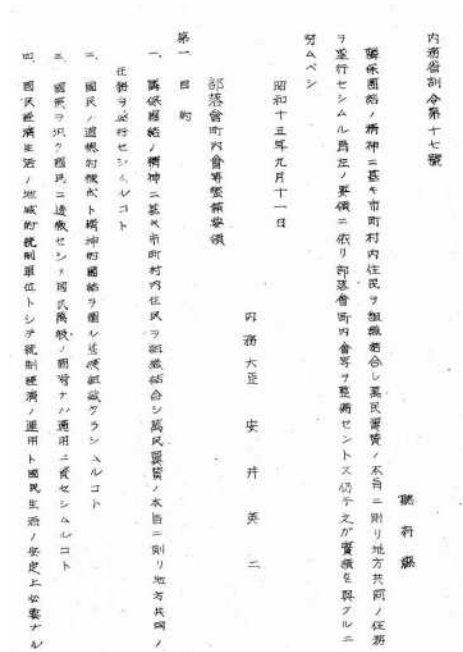 内務省訓令第十七號
廳府縣
隣保團結ノ精神ニ基キ市町村内住民ヲ組織結合シ萬民翼賛ノ本旨ニ則リ地方共同ノ任務
ヲ遂行セシムル爲左ノ要領ニ依リ部落會町内會等ヲ整備セントス仍テ之ガ實績ヲ擧グルニ
努ムベシ
昭和十五年九月十一日
内務大臣 安井英二
部落會町内會等整備要領
第一 目的
一、隣保團結ノ精神ニ基キ市町村内住民ヲ組織結合シ萬民翼賛ノ本旨ニ則リ地方共同ノ
任務ヲ遂行セシムルコト
二、國民ノ道徳的錬成ト精神的團結ヲ圖ル基礎組織タラシムルコト
三、國策ヲ汎ク國民ニ透徹セシメ國政萬般ノ圓滑ナル運用ニ資セシムルコト
四、國民經濟生活ノ地域的統制單位トシテ統制經濟ノ運用ト國民生活ノ安定上必要ナル